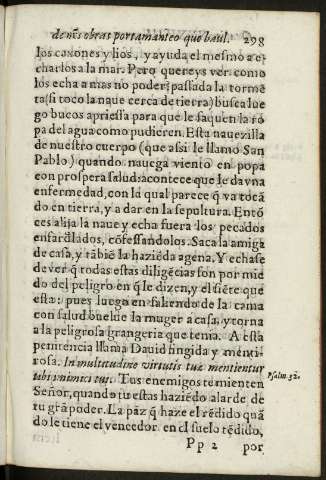 de nr̃as obras portamanteo que baul. 298
los caxones y lios, y ayuda el mesmo a e-
charlos a la mar. Pero quereys ver como
los echa a mas no poder: passada la torme
ta (si toco la naue cerca de tierra) busca lue
go bucos apriessa para que le saquen la ro
pa del agua como pudieren. Esta nauezilla
de nuestro cuerpo (que assi le llamo San
Pablo) quando nauega viento en popa
con prospera salud: acontece que le da vna
enfermedad, con la qual parece q̃ va toca
do en tierra, y a dar en la sepultura. Entõ
ces alija la naue y echa fuera los pecados
enfardlados, cõfessandolos. Saca la amiga
de casa, y tãbiẽ la haziẽda agena. Y echase
de ver q̃ todas estas diligẽcias son por mie
do del peligro en q̃ le dizen, y el siẽte que
esta: pues luego en saliendo de la cama
con salud buelue la muger a casa, y torna
a la peligrosa grangeria que tenia. A esta
penitẽcia llama Dauid fingida y menti-
rosa. In multitudine virtutis tuæ mentientur
tibi inimici tui. Tus enemigos te mienten Psalm. 32.
Señor, quando tu estas haziẽdo alarde de
tu grã poder. La paz q̃ haze el rẽdido quã
do le tiene el vencedor en el suelo tẽdido,
Pp 2 por